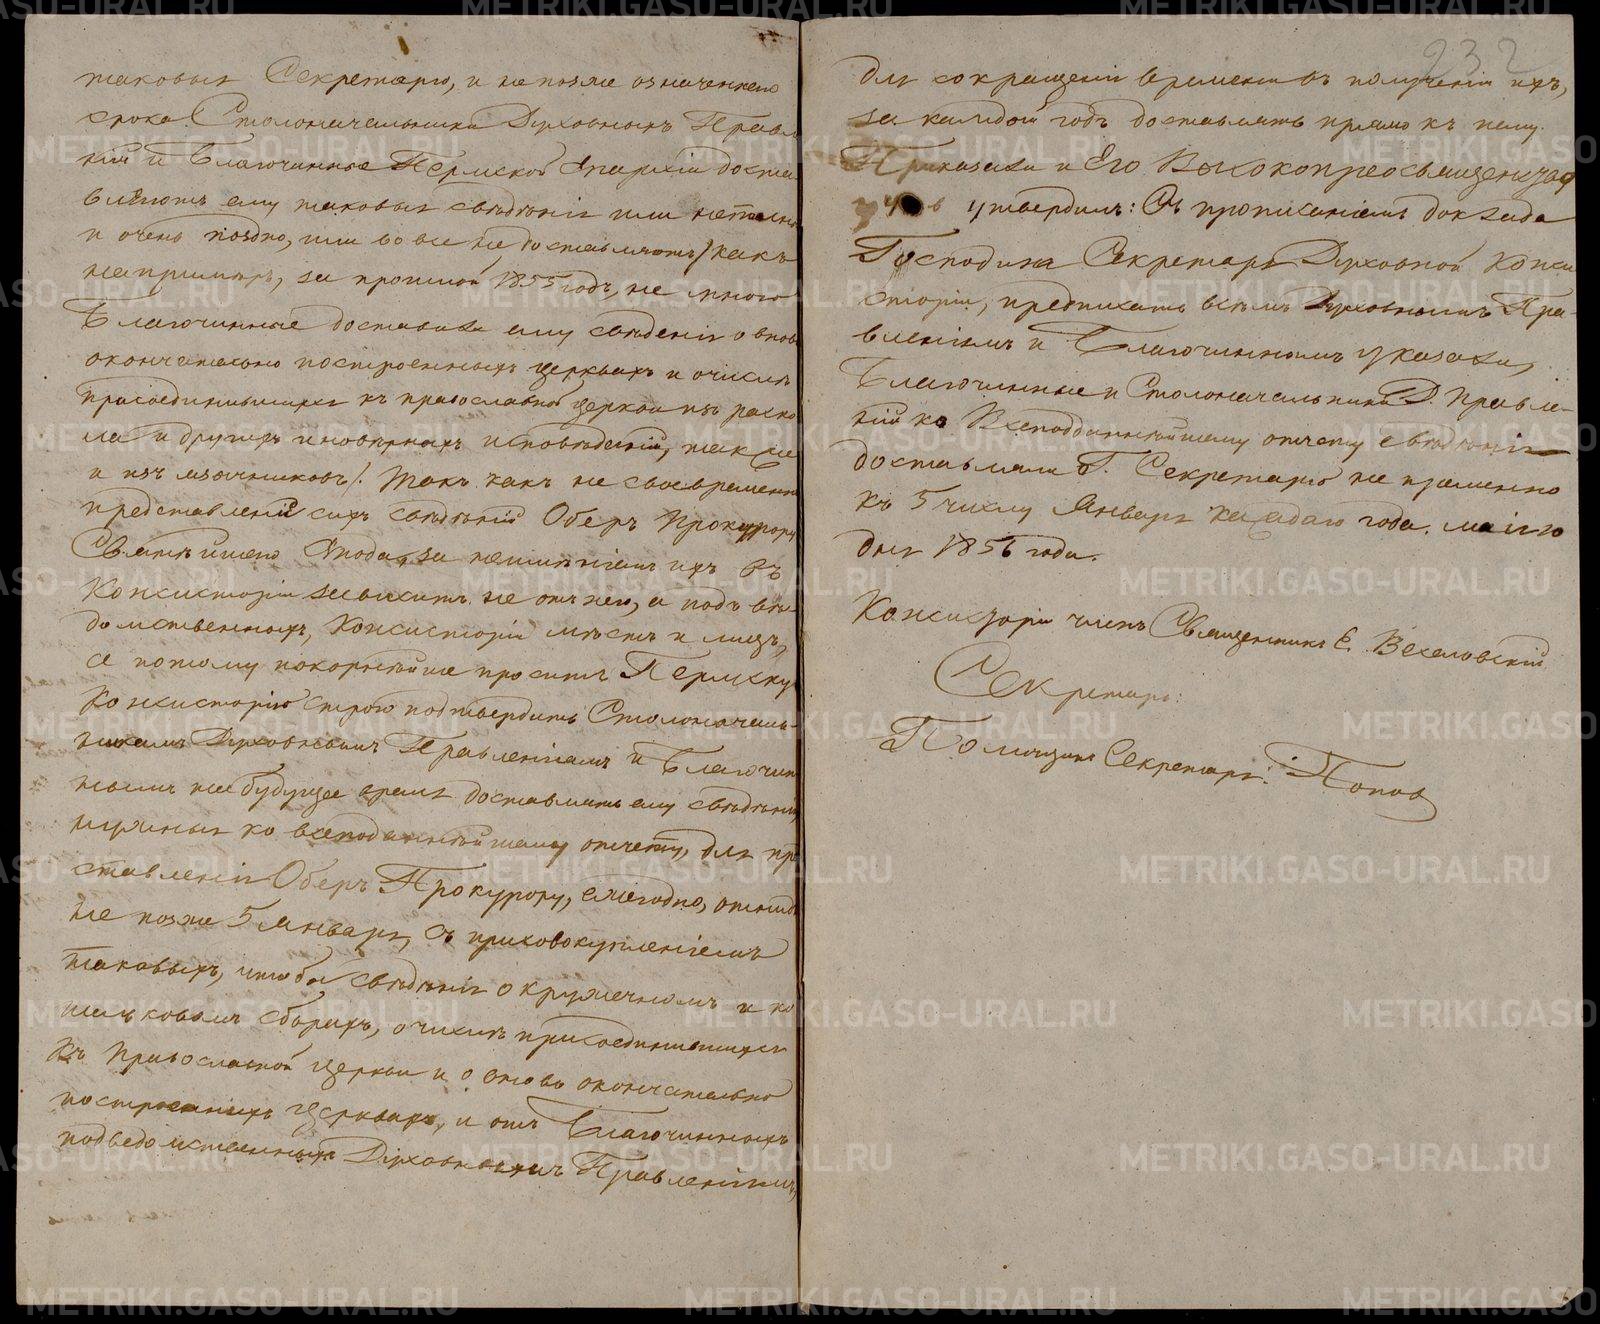 таковыя Секретарю, и не позже означеннаго
срока. Столоначальники Духовныхъ Правл
ній и Благочинные Пермской Епархіи доста
вляютъ ему таковыя свѣдѣнія или неполны
и очень поздно, или вовсе не доставляютъ /какъ
напримѣръ, за прошлой 1855 годъ, не много
Благочинные доставили ему свѣденія о вновь
окончательно построенныхъ церквахъ и о числѣ
присоединившихся къ православной церкви изъ раско
ла и другихъ иновѣрныхъ исповѣданій, также
и изъ язычниковъ/. Такъ какъ не своевременно
представленіе сихъ свѣдѣній Оберъ Прокурору
Святѣйшаго Синода, за неимѣніемъ ихъ въ
Консисторіи зависитъ не отъ него, а подъ вѣ-
домственныхъ, Консисторіи мѣстъ и лицъ,
а потому покорнѣйше проситъ Пермску
Консисторію строго подтвердить Столоначаль-
никамъ Духовныхъ Правленіямъ и Благочин
нымъ на будущее время доставлять ему свѣдѣнія
нужныя ко всеподданнѣйшему отчету, для пре
ставленія Оберъ Прокурору, ежегодно, отнюдь
не позже 5 Января, съ присовокупленіемъ
таковыхъ, чтобы свѣдѣнія о кружечномъ и ко
шельковомъ сборахъ, о числѣ присоединившихся
къ Православной церкви и о вновь окончательно
построенныхъ церквахъ, и отъ Благочинныхъ
подведомственныхъ Духовнымъ Правленіямъ,
232
для сокращенія времени въ полученіи ихъ,
за каждой годъ доставлять прямо къ нему.
Приказали и Его Высокопреосвященство
утвердилъ: Съ прописаніемъ доклада
Господина Секретаря Духовной Конси
сторіи, предписать всѣмъ Духовнымъ Пра-
вленіямъ и Благочиннымъ указами,
Благочинные и Столоначальники Д. Правле-
ній ко Всеподданнѣйшему отчету свѣдѣнія
доставляли Г. Секретарю непременно
къ 5 числу Января каждаго года. Маія 10
дня 1856 года.
Консисторіи членъ Священникъ Е. Веселовскій
Секретарь:
Помощникъ Секретаря: Поповъ
METRIKI.GASO-URAL.RU